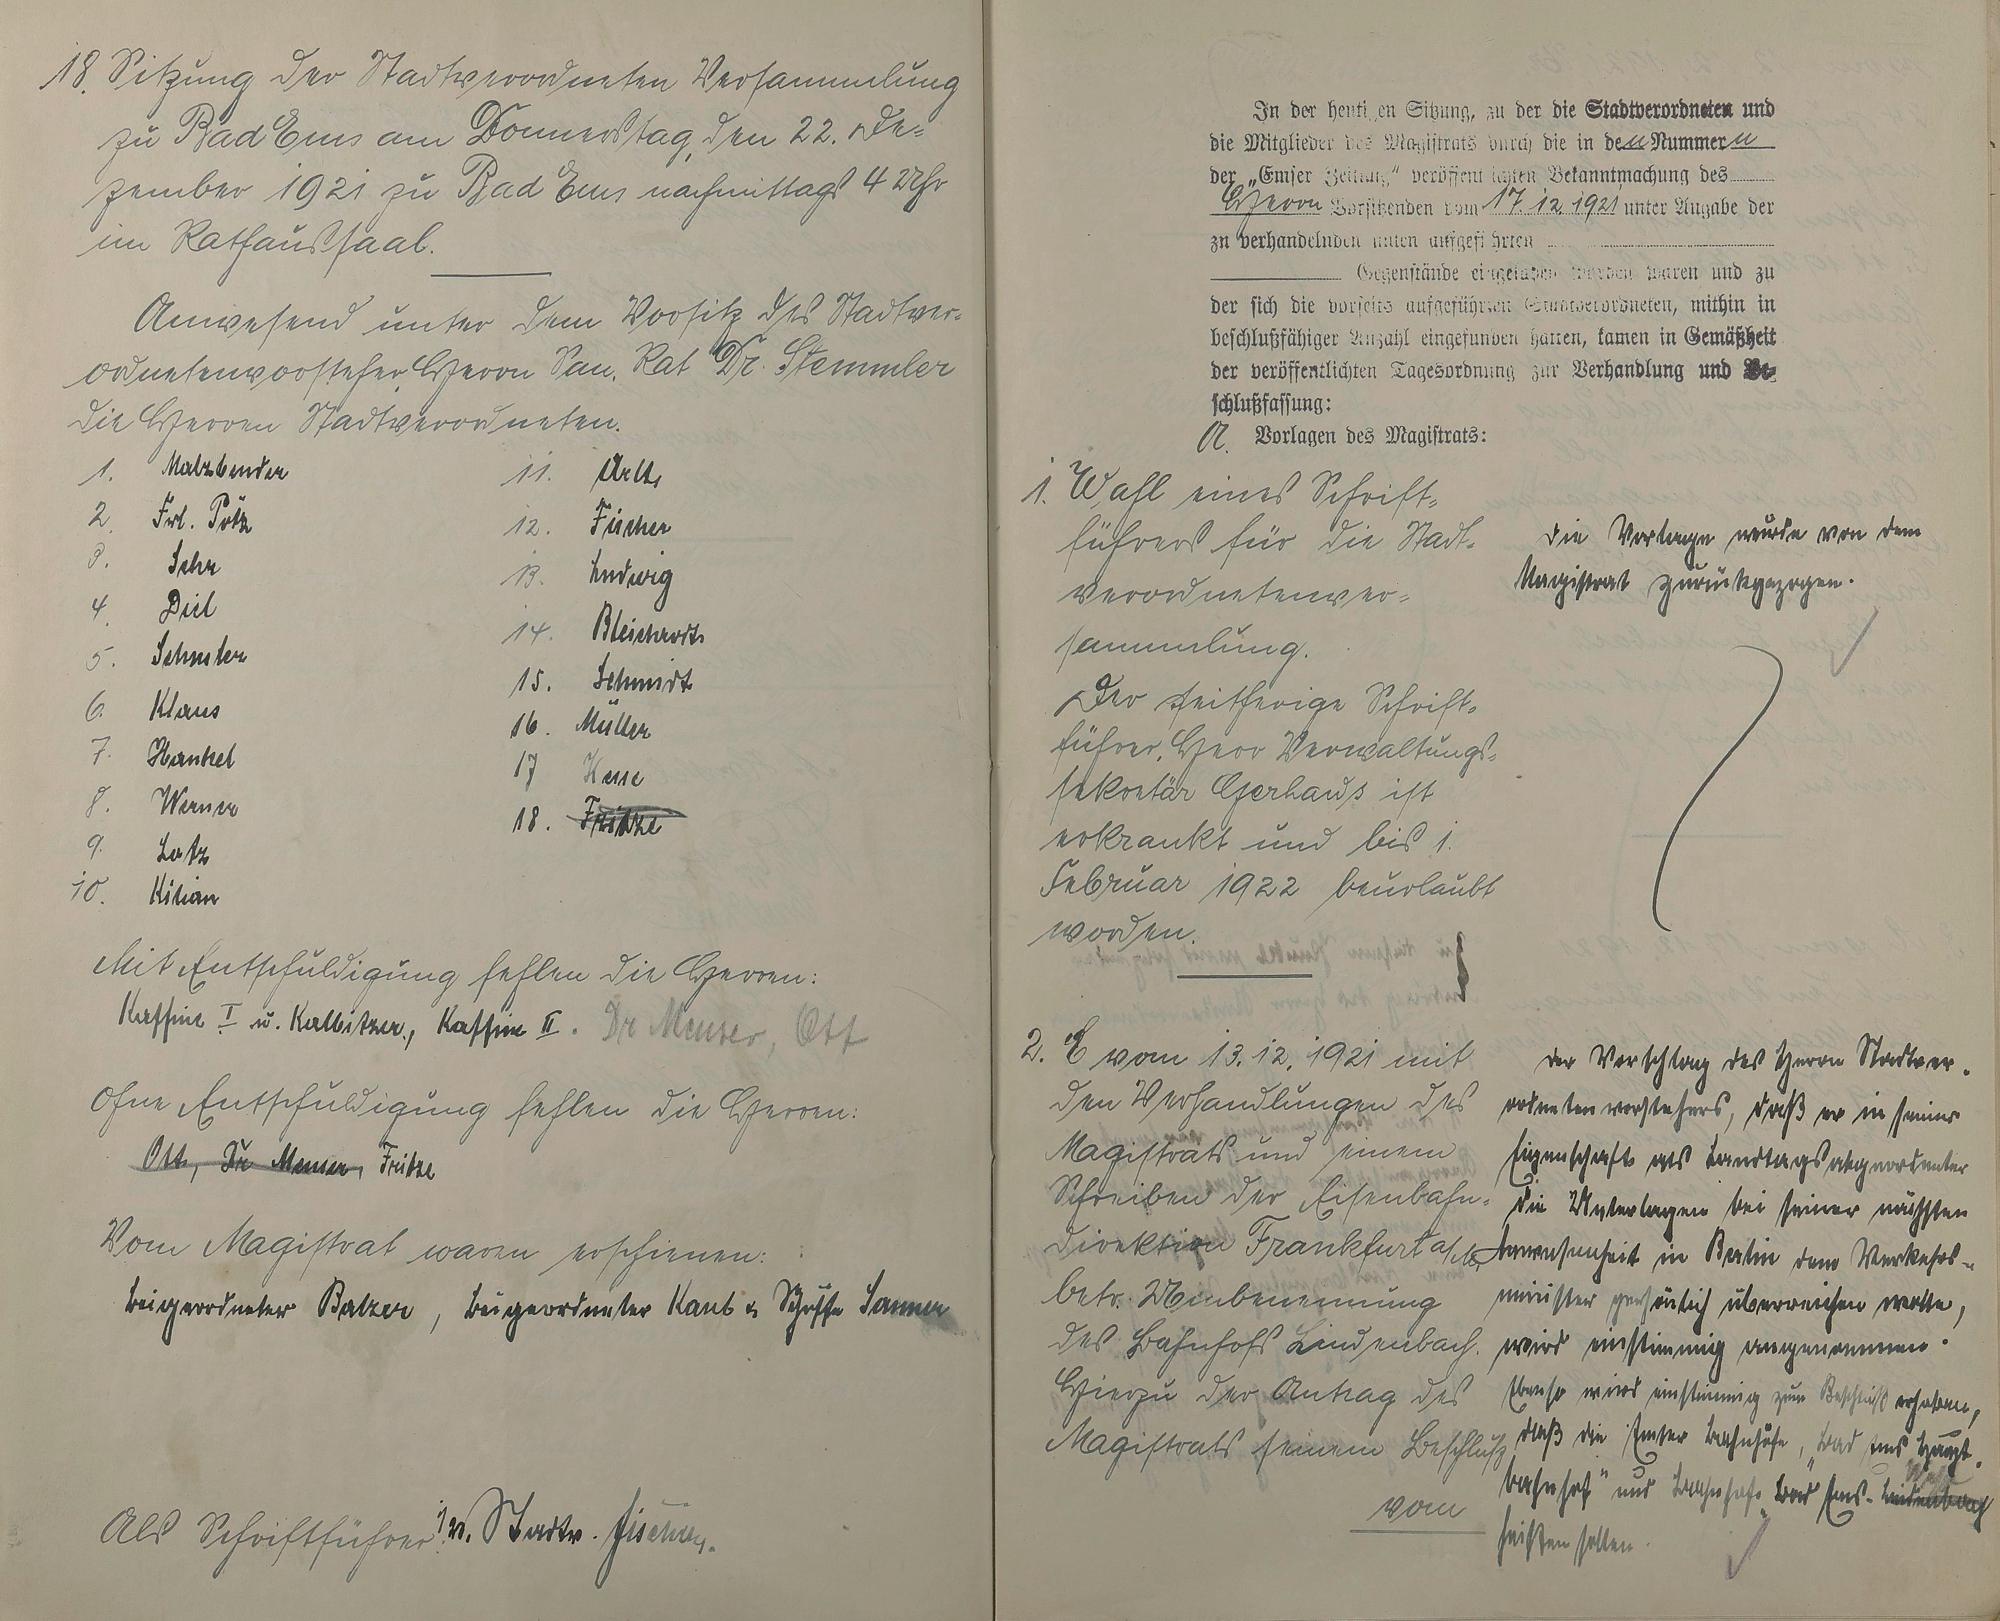 18. Sitzung der Stadtverordneten Versammlung
zu Bad Ems am Donnerstag, den 22. De-
zember 1921 zu Bad Ems nachmittags 4 Uhr
im Rathaussaal.
Anwesend unter dem Vorsitz des Stadtver-
ordnetenvorsteher, Herrn San. Rat Dr. Stemmler
die Herren Stadtverordneten.
1. Malzbender
2. Frl. Pötz
3. Sehr
4. Diel
5. Schuler
6. Klaus
7. Hankel
8. Werner
9. Lotz
10. Kilian
11. Arlt
12. Fischer
13. Ludwig
14. Bleichrodt
15. Schmidt
16. Müller
17 Hesse
18. Fritze
Mit Entschuldigung fehlen die Herren:
Kaffine I u. Kalbitzer, Kaffine II. Dr Meuser, Ott
Ohne Entschuldigung fehlen die Herren:
Ott, Dr Meuser, Fritze
Vom Magistrat waren erschienen:
Beigeordneter Balzer, Beigeordneter Kaul u Schöffe Sanner
Als Schriftführer i.V. Stadtv. Fischer.
In der heutigen Sitzung, zu der die Stadtverordneten und
die Mitglieder des Magistrats durch die in den Nummern
der „Emser Zeitung“ veröffentlichten Bekanntmachung des
Herrn Vorsitzenden vom 17. 12 1921 unter Angabe der
zu verhandelnden unten aufgeführten
Gegenstände eingeladen worden waren und zu
der sich die vorseits aufgeführten Stadtverordneten, mithin in
beschlußfähiger Anzahl eingefunden hatten, kamen in Gemäßheit
der veröffentlichten Tagesordnung zur Verhandlung und Be-
schlußfassung:
A. Vorlagen des Magistrats:
1. Wahl eines Schrift-
führers für die Stadt-
verordnetenver-
sammlung.
Der seitherige Schrift-
führer, Herr Verwaltungs-
sekretär Gerhaus ist
erkrankt und bis 1.
Februar 1922 beurlaubt
worden.
Die Vorlage wurde von dem
Magistrat zurückgezogen.
2. E vom 13. 12. 1921 mit
den Verhandlungen des
Magistrats und einem
Schreiben der Eisenbahn-
direktion Frankfurt a/M,
betr. Umbenennung
des Bahnhofs Lindenbach.
Hierzu der Antrag des
Magistrats seinem Beschluß
vom
Der Vorschlag des Herrn Stadtver-
ordnetenvorstehers, daß er in seiner
Eigenschaft als Landtagsabgeordneter
die Unterlagen bei seiner nächsten
Anwesenheit in Berlin dem Verkehrs-
minister persönlich überreichen wolle,
wird einstimmig angenommen.
Ebenso wird einstimmig zum Beschluß erhoben,
daß die Emser Bahnhöfe, „Bad Ems Haupt-
bahnhof“ und Bahnhof „Bad Ems-Lindenbach
heißen sollen.